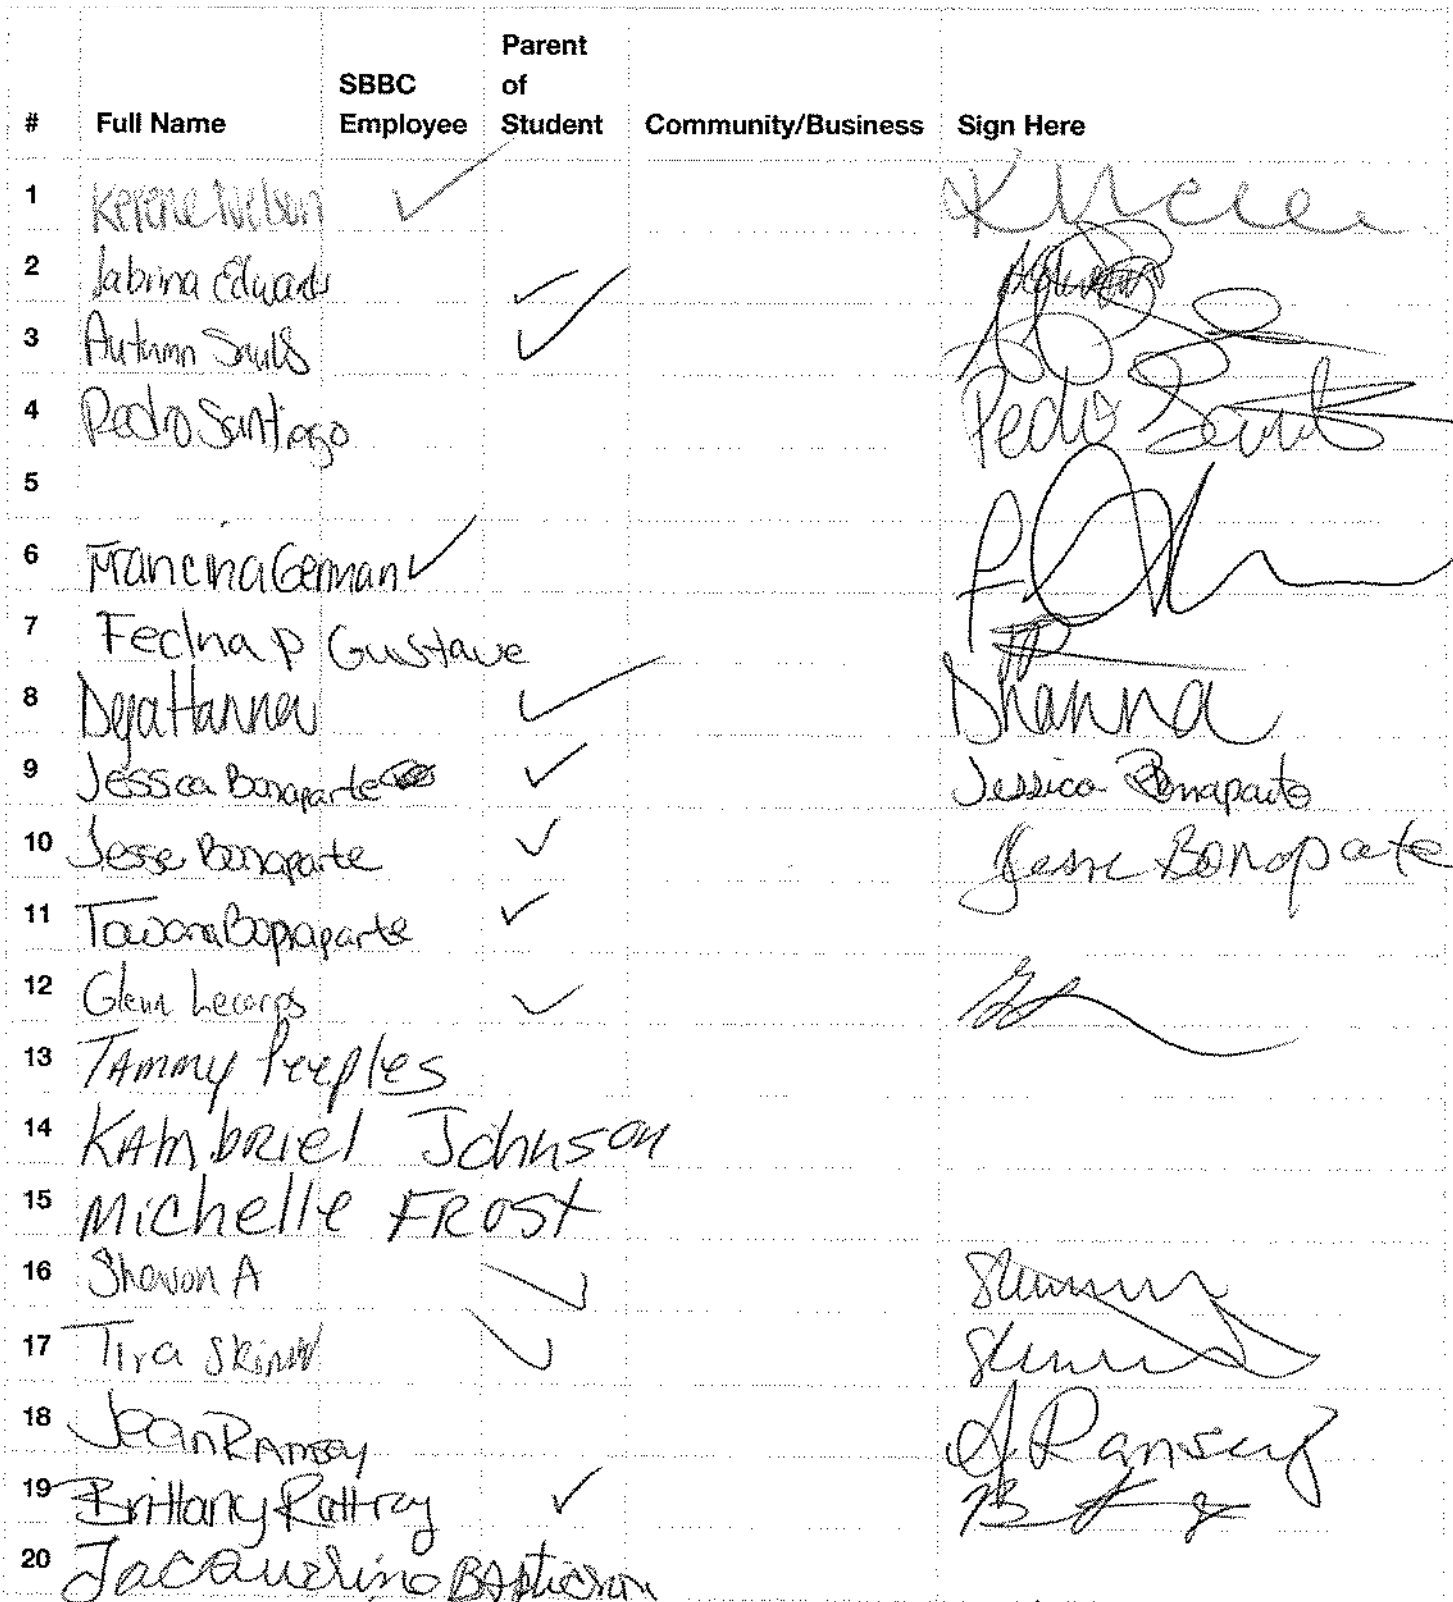 # Full Name SBBC Employee Parent of Student Community/Business Sign Here
1 Kerene Nelson ✓
2 Sabrina Edwards ✓
3 Autumn Sauls ✓
4 Pedro Santiago Pedro
5
6 Francina German ✓
7 Fedna P Gustave
8 Deja Hanna ✓ DHanna
9 Jessica Bonaparte ✓ Jessica Bonaparte
10 Jesse Bonaparte ✓ Jesse Bonaparte
11 Tawana Bonaparte ✓
12 Glenn Lecorps ✓
13 Tammy Peeples
14 KAmbriel Johnson
15 Michelle FROST
16 Shavon A ✓
17 Tira Skinner ✓
18 Jean Ramsey J. Ramsey
19 Brittany Rattray ✓
20 Jacqueline